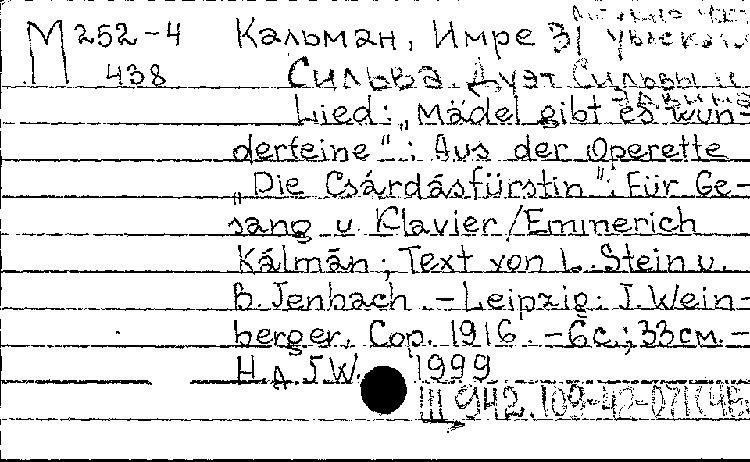 М 252-4 Кальман, Имре
438 Сильва. Дуэт Сильвы и
Lied: „Mädel gibt es wun-
derfeine“: Aus der Operette
„Die Csárdásfürstin“: Für Ge-
sang u. Klavier/Emmerich
Kálmán; Text von L. Stein u.
B. Jenbach. – Leipzig: J. Wein-
berger, Cop. 1916. – 6 с.; 33 см. –
Н. д. J. W. 1999
III 942.109-42-071(45